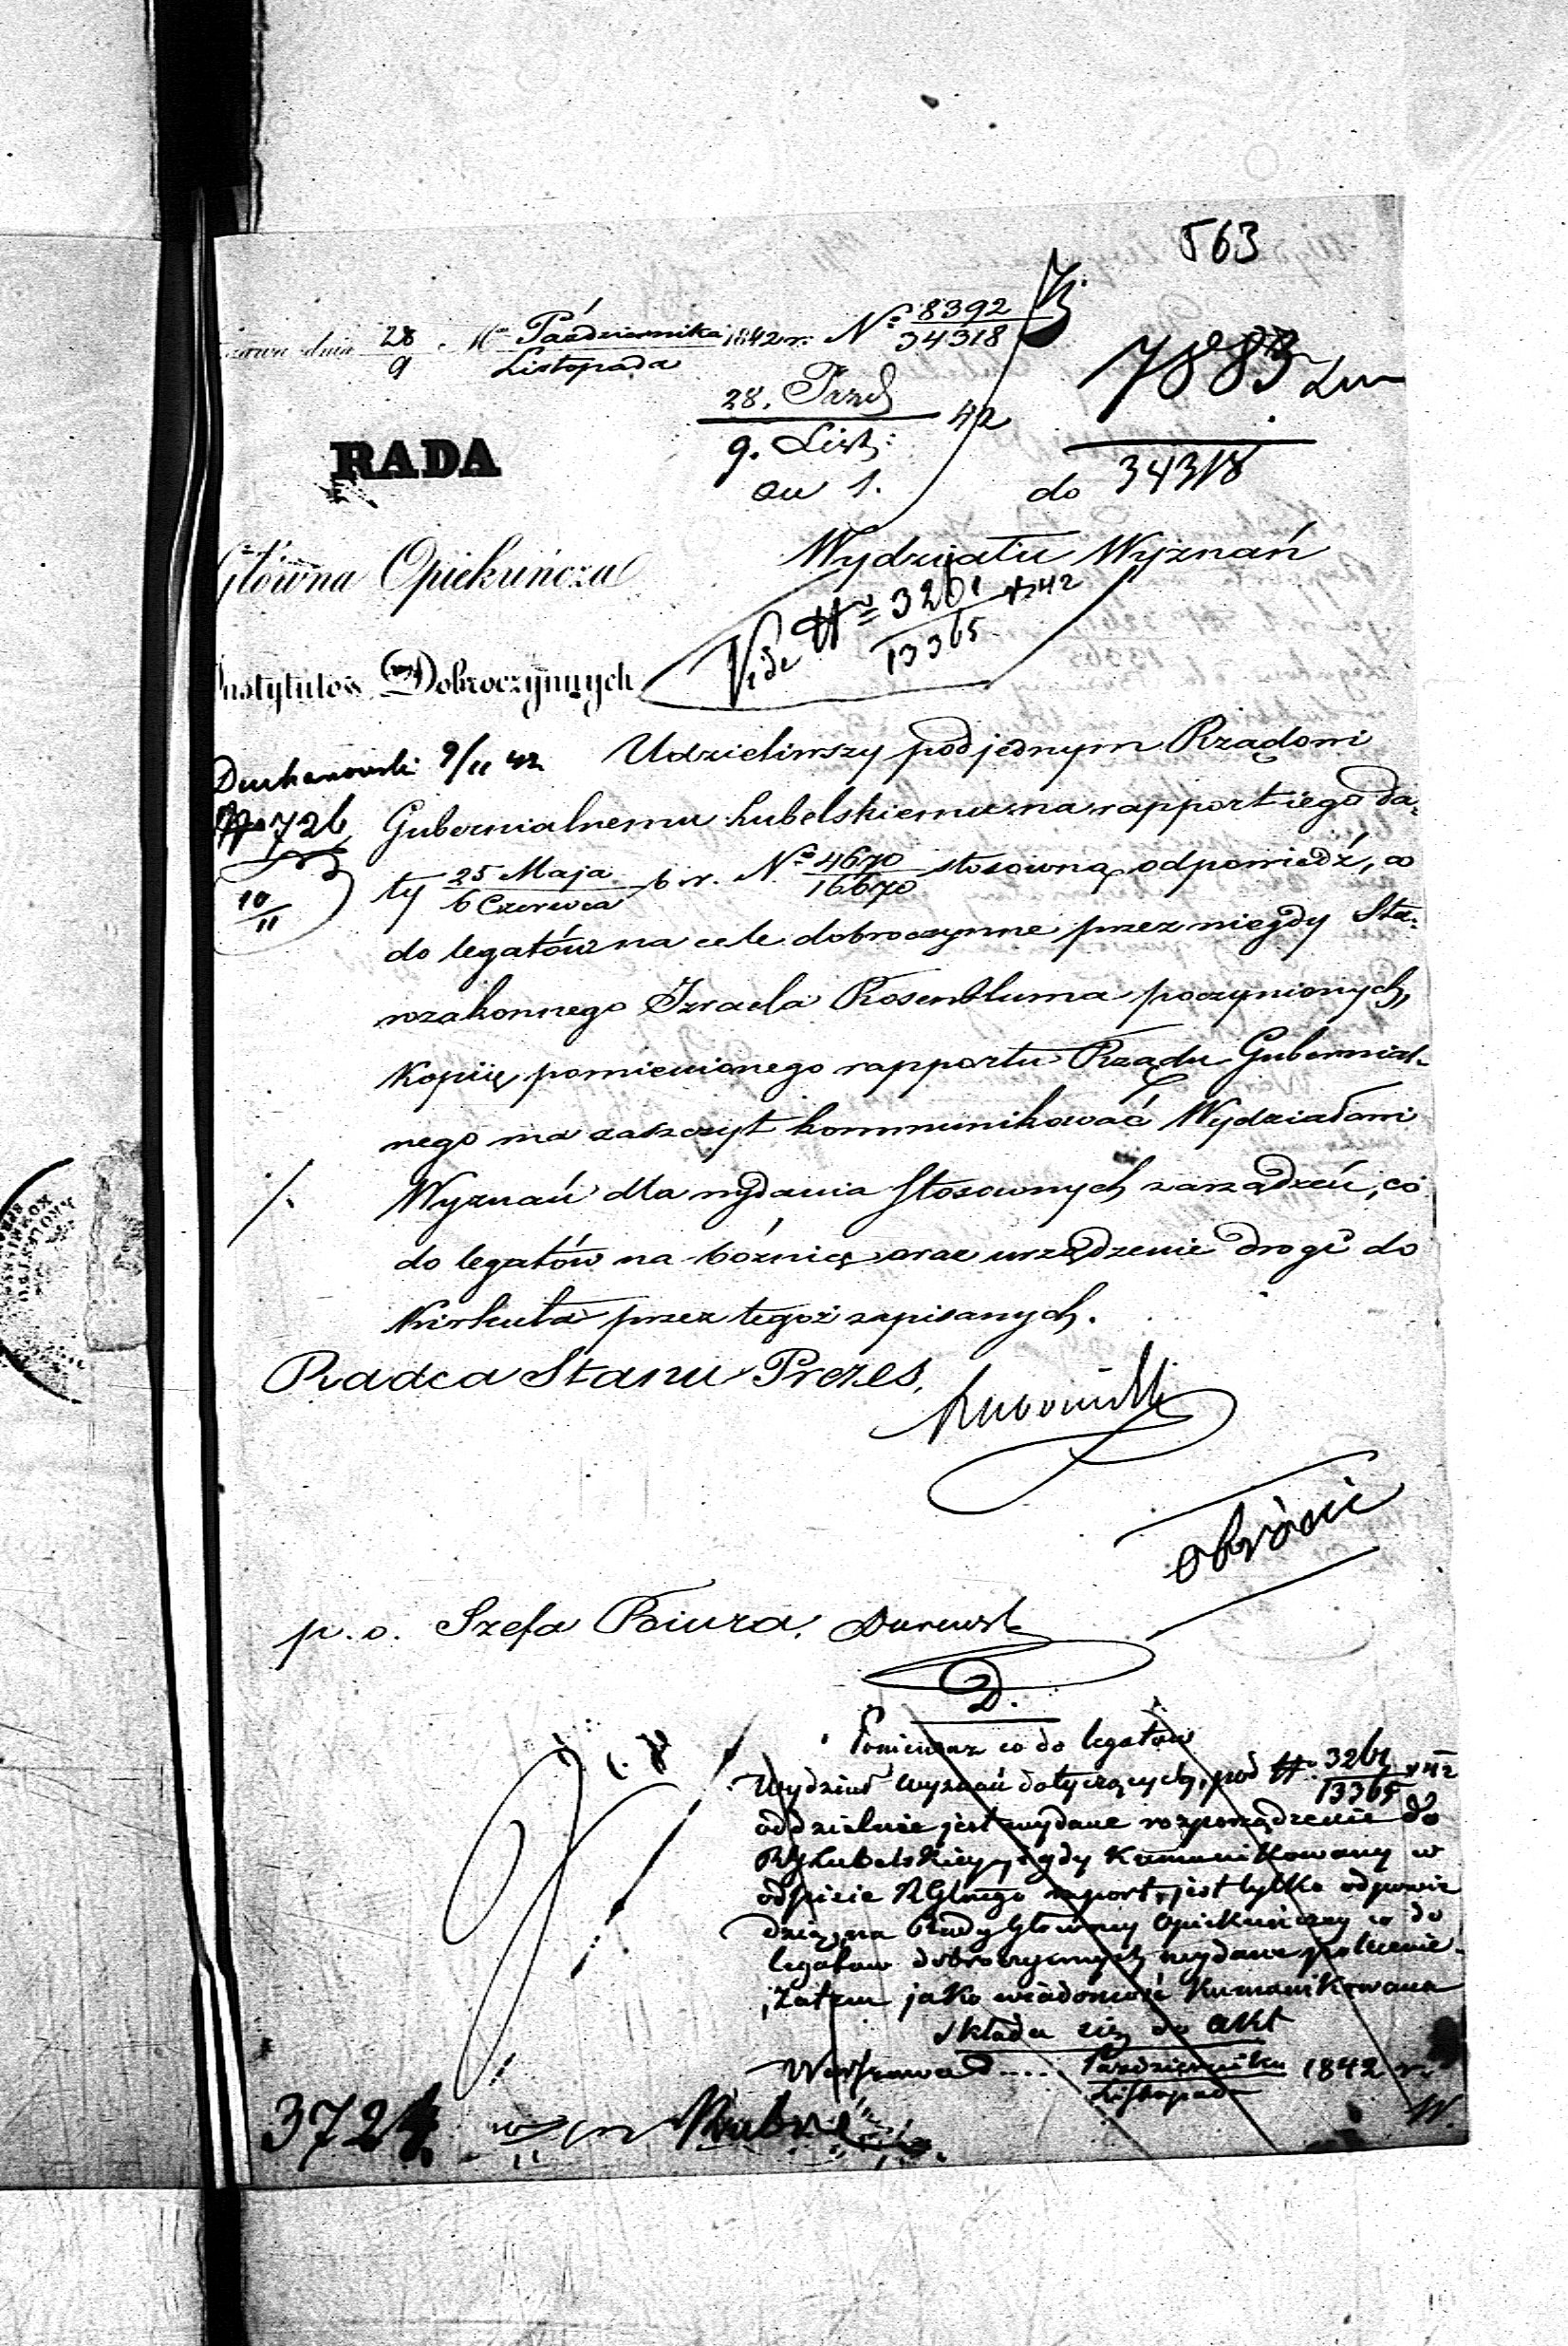 563
dnia 28/9 Mca Października/Listopada 1842 r. No 8392/34318
7883
28. Paźd/9. List: 42
do 34318
RADA
Główna Opiekuńcza
Wydziału Wyznań
Vide No 3261/13365 42
Instytutów Dobroczynnych
9/11 42 Udzieliwszy pod jednym Rządowi
No 726 Gubernialnemu Lubelskiemu na rapport iego da-
ty 25 Maja/6 Czerwca b. r. No 4670/16670 stosowną odpowiedź, co
10/11
do legatów na cele dobroczynne przez niegdy Sta-
rozakonnego Izraela Rosenbluma poczynionych,
Kopiię pomienionego rapportu Rządu Gubernial-
nego ma zaszczyt kommunikować Wydziałowi
/. Wyznań dla wydania stosownych zarządzeń, co
do legatów na bóżnicę oraz urządzenie drogi do
Kirkuta przez tegoż zapisanych.
Radca Stanu Prezes,
obrócić
p. o. Szefa Biura,
D.
Ponieważ co do legatów
Wydział wyznań dotyczących, pod No 3261/13365 42
oddzielnie jest wydane rozporządzenie do
RG Lubelskiey, gdy kumunikowany w
odpisie RGlnego raport, jest tylko odpowie
dzią na Rady Główney Opiekuńczey co do
legatow dobroczynnych wydane polecenie.
Zatem jako wiadomość kumunikowana
składa się do akt
Warszawa d..... Października/Listopada 1842 r.
W.
3724